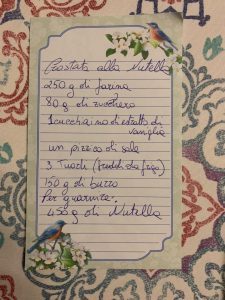 Crostata alla Nutella
250 g di farina
80 g di zucchero
1 cucchaino di estratto di
vaniglia
un pizzico di sale
3. Tuorli (freddi da frigo)
150 g di burro
Per guarnire.
450 g di Nutella